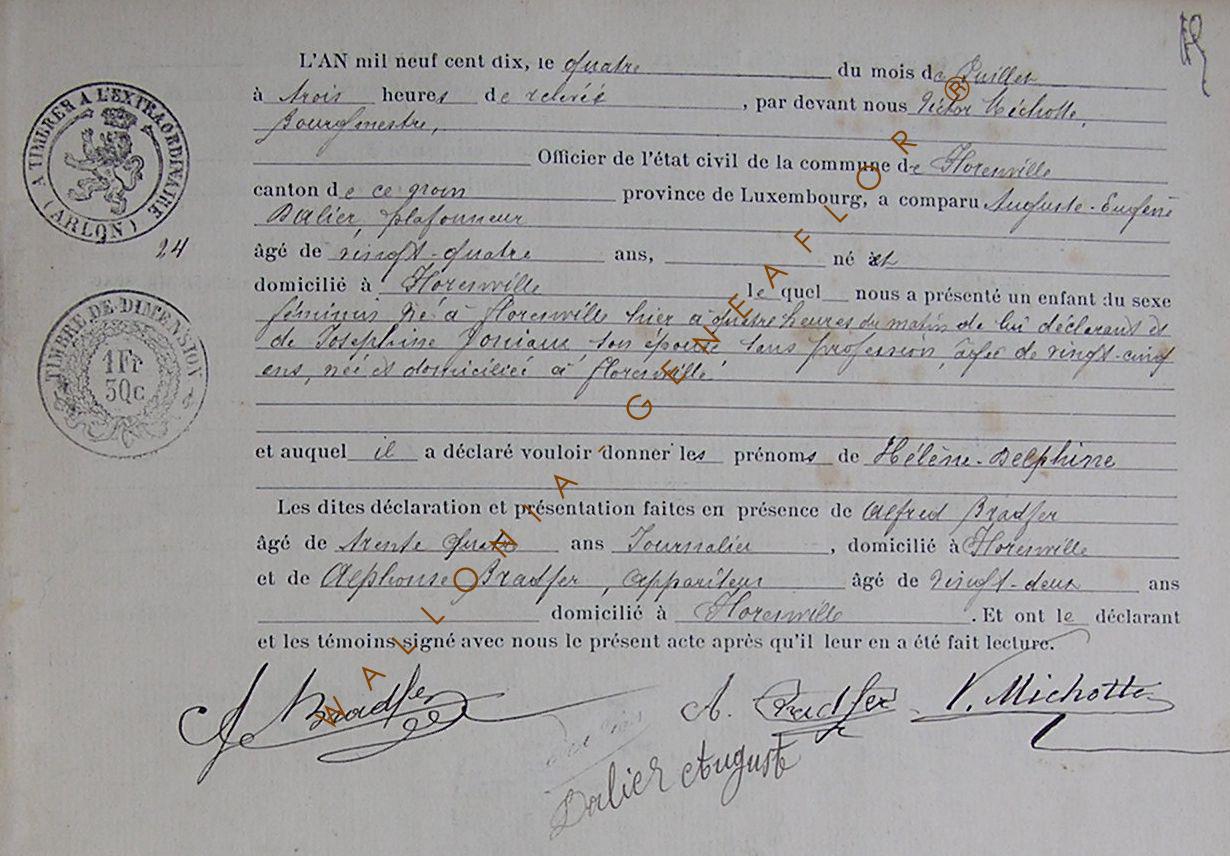 L'AN mil neuf cent dix, le quatre du mois de Juillet
à trois heures de relevée, par devant nous Victor Michotte,
Bourgmestre,
Officier de l'état civil de la commune de Florenville
canton de ce nom province de Luxembourg, a comparu Auguste-Eugène
Dalier, plafonneur
âgé de vingt-quatre ans, né et
domicilié à Florenville lequel nous a présenté un enfant du sexe
féminin né à Florenville hier à quatre heures du matin de lui déclarant et
de Joséphine son épouse sans profession, âgée de vingt-cinq
ans, née et domiciliée à Florenville.
et auquel il a déclaré vouloir donner les prénoms de Hélène-Delphine
Les dites déclaration et présentation faites en présence de Alfred Bradfer
âgé de trente quatre ans Journalier, domicilié à Florenville
et de Alphonse Bradfer, appariteur âgé de vingt-deux ans
domicilié à Florenville. Et ont le déclarant
et les témoins signé avec nous le présent acte après qu'il leur en a été fait lecture.
A Bradfer A. Bradfer V. Michotte
Dalier Auguste
A TIMBRES A L'EXTRAORDINAIRE
(ARLON)
24
TIMBRE DE DIMENSION
1Fr
30c
WALLONIA-GENEAFLOR®